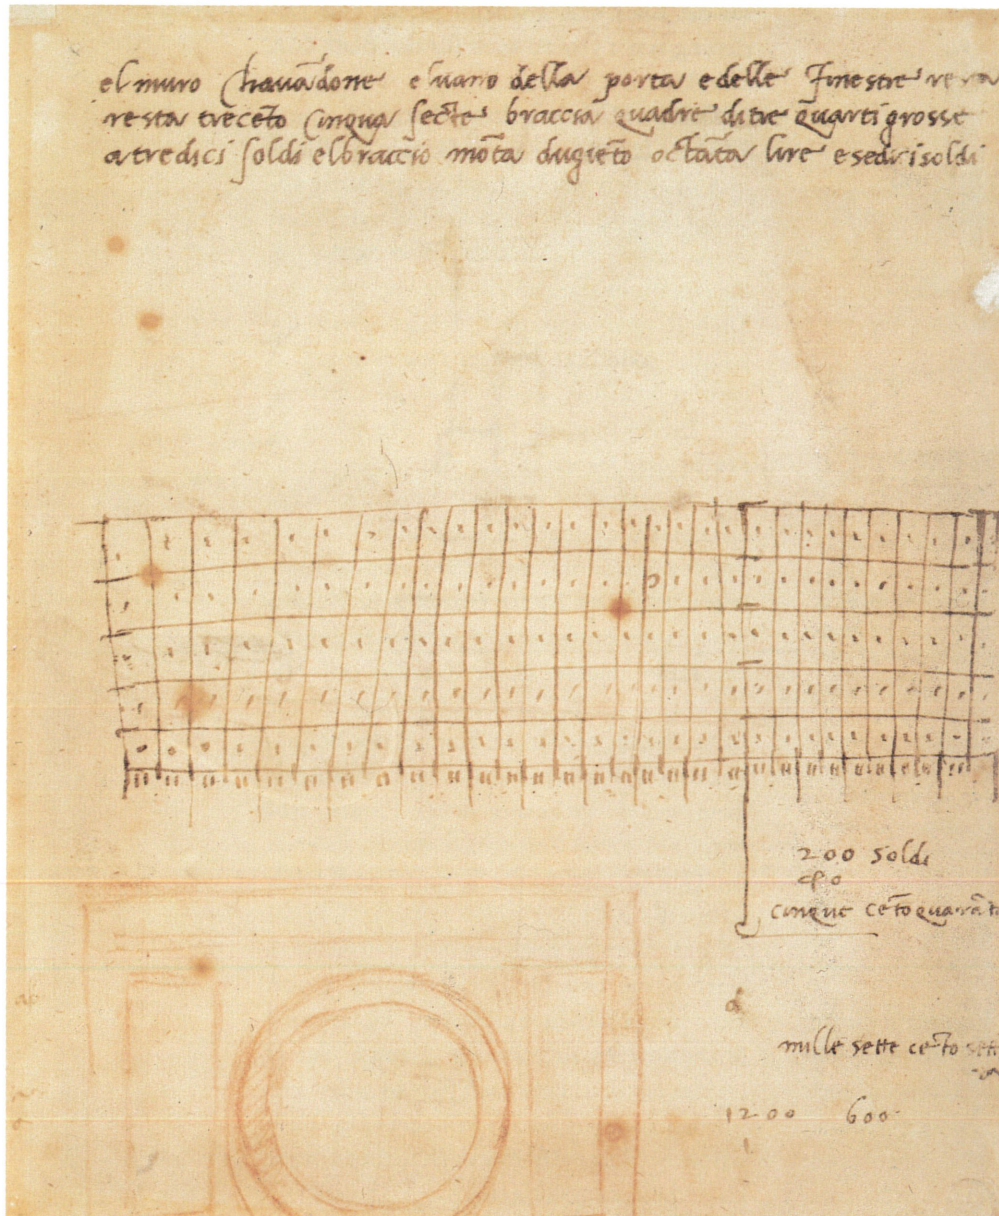 el muro chavādone el vano della porta e delle finestre
resta trecēto cinqua secte braccia quadre di tre quarti grosse
a tredici soldi el braccio mōta dugiēto octāta lire e sedici soldi
200 soldi
cinque cēto quarā
mille sette cēto sett
1200 600